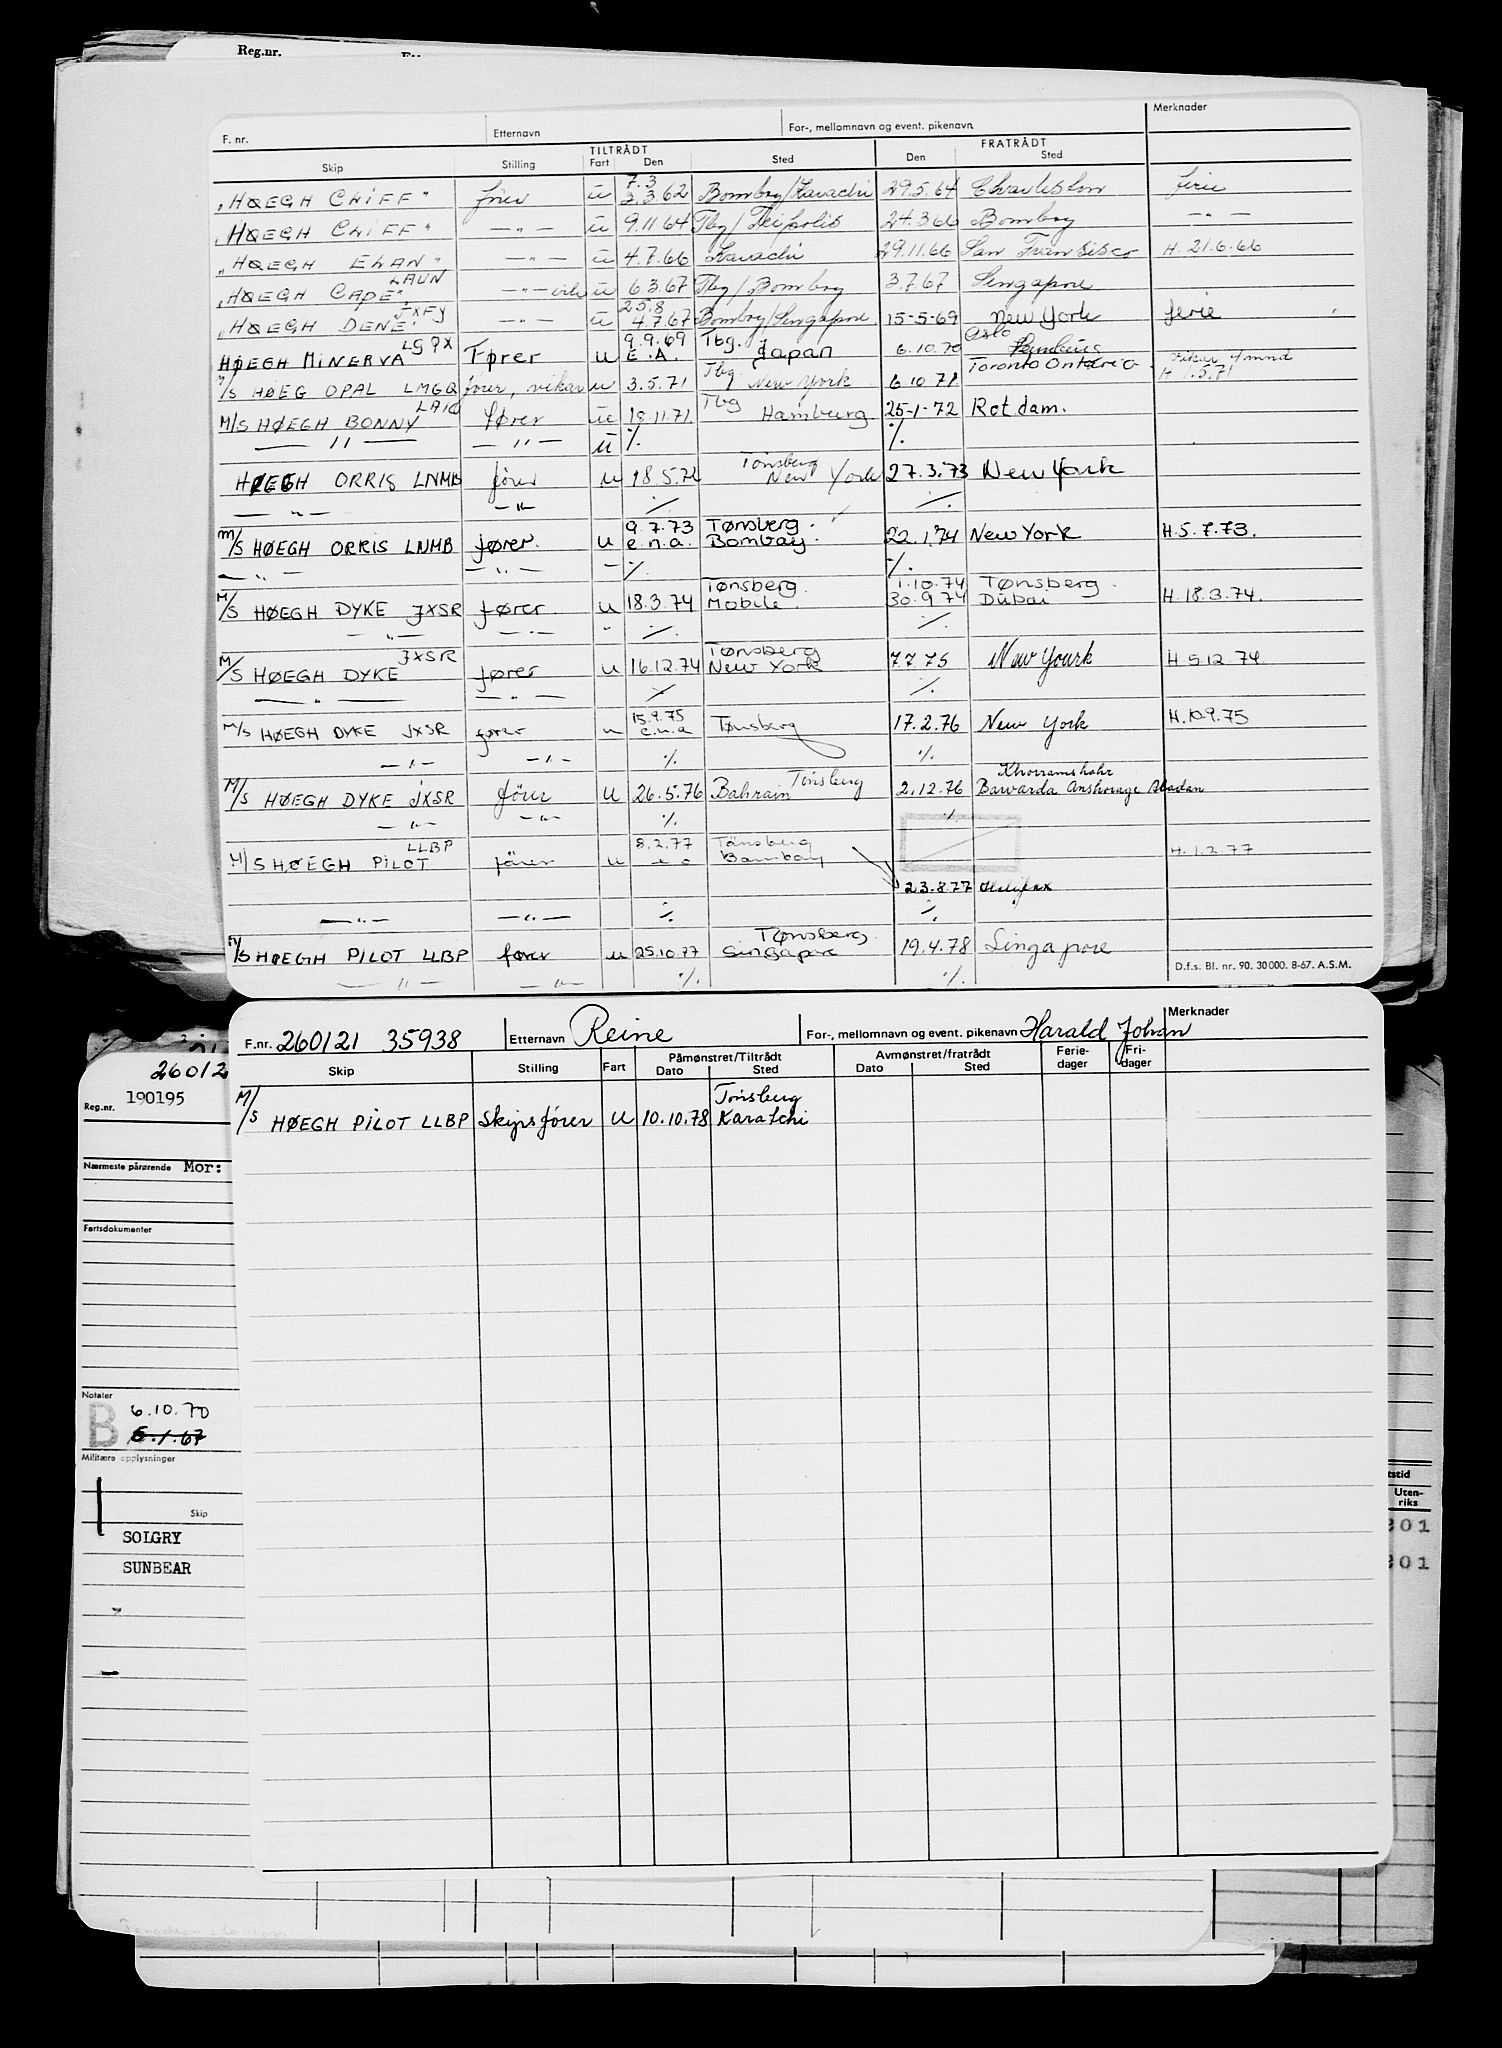 Reg.nr.
F. nr. Etternavn For-, mellomnavn og event. pikenavn Merknader
TILTRÅDT FRATRÅDT
Skip Stilling Fart Den Sted Den Sted
7.3
"HØEGH CHIFF" fører u 3.3.62 Bombay/Karachi 29.5.64 Charleston ferie
"HØEGH CHIFF" — " — u 9.11.64 Tbg/Tripolis 24.3.66 Bombay — " —
"HØEGH ELAN" — " — u 4.7.66 Karachi 29.11.66 San Fransisco H. 21.6.66
LAUN
"HØEGH CAPE" — " — vik. u 6.3.67 Tbg/Bombay 3.7.67 Singapore
JXFY 25.8
"HØEGH DENE" — " — u 4.7.67 Bombay/Singapore 15-5-69 New York ferie
LGPX 9.9.69 Tbg. Oslo
HØEGH MINERVA Fører u E.A. Japan 6.10.70 Hamburg
M/S HØEG OPAL LMGQ fører, vikar u 3.5.71 Tbg. New York 6.10.71 Toronto Ontario Vikar 4 mnd H 1.5.71
M/S HØEGH BONNY fører u 18.11.71 Tbg Hamburg 25-1-72 Rotdam.
— " — — " — u %. %.
Tønsberg
HØEGH ORRIS LNMB fører u 18.5.72 New York 27.3.73 New York
— " — — " — % %.
9.7.73 Tønsberg.
M/S HØEGH ORRIS LNMB fører. u e.n.a. Bombay. 22.1.74 New York H.5.7.73.
— " — — " — — %. %.
Tønsberg. 1.10.74 Tønsberg.
M/S HØEGH DYKE JXSR fører. u 18.3.74 Mobile. 30.9.74 Dubai H.18.3.74.
— " — — " — %. %.
JXSR Tønsberg
M/S HØEGH DYKE fører u 16.12.74 New York 7.7.75 New Yourk H 5.12.74
— " — — " — % %.
15.9.75
M/S HØEGH DYKE JXSR fører u e.n.a Tønsberg 17.2.76 New York H.10.9.75
— " — — " — % %.
Tønsberg Khorramshahr
M/S HØEGH DYKE JXSR fører u 26.5.76 Bahrain 2.12.76 Bawarda Anshorage Abadan
— " — — " — %. %.
LLBP 8.2.77 Tønsberg
M/S HØEGH PILOT fører u Bombay H.1.2.77
23.8.77 Halifax
— " — — " — % %.
Tønsberg
M/S HØEGH PILOT LLBP fører u 25.10.77 Singapore 19.4.78 Singapore
— " — — " — %. %.
D.f.s. Bl. nr. 90. 30 000. 8-67. A.S.M.
F.nr. 260121 35938 Etternavn Reine For-, mellomnavn og event. pikenavn Harald Johan Merknader
Skip Stilling Fart Påmønstret/Tiltrådt Dato Sted Avmønstret/fratrådt Dato Sted Ferie-dager Fri-dager
Tønsberg
M/S HØEGH PILOT LLBP Skipsfører U 10.10.78 Karatchi
26012
Reg.nr. 190195
Nærmeste pårørende Mor:
Fartsdokumenter
Notater
B 6.10.70
6.1.67
Militære opplysninger
Skip
SOLGRY
SUNBEAR
tstid
Uten-
riks
301
301